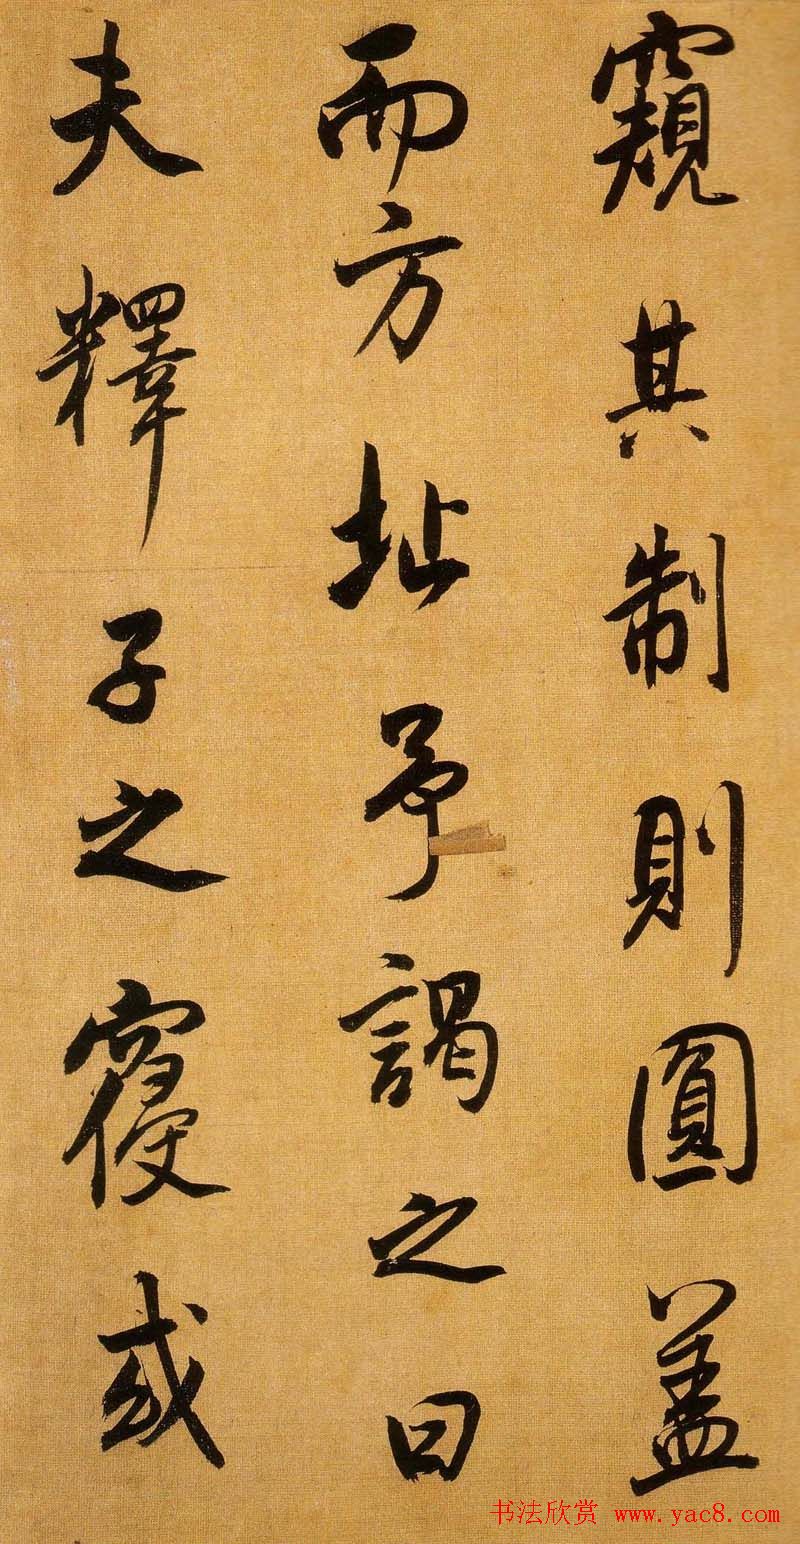 窺其制則圓蓋
而方址予謁之曰
夫釋子之寢或
书法欣赏 www.yac8.com